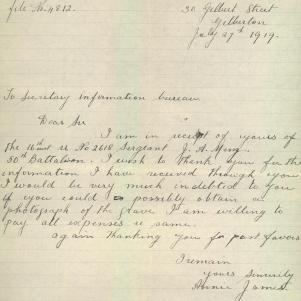 file No. 4812.
30 Gilbert Street
Gilberton
July 27th 1919.
To Secretary information bureau
Dear Sir
I am in receipt of yours of
the 16th inst re No 2618 Sergeant J. A.
50th Battalion. I wish to thank you for the
information I have received through you
I would be very much indebted to you
if you could possibly obtain a
photograph of the grave I am willing to
pay all expenses re same.
again thanking you for past favors
I remain
yours sincerely
Annie James